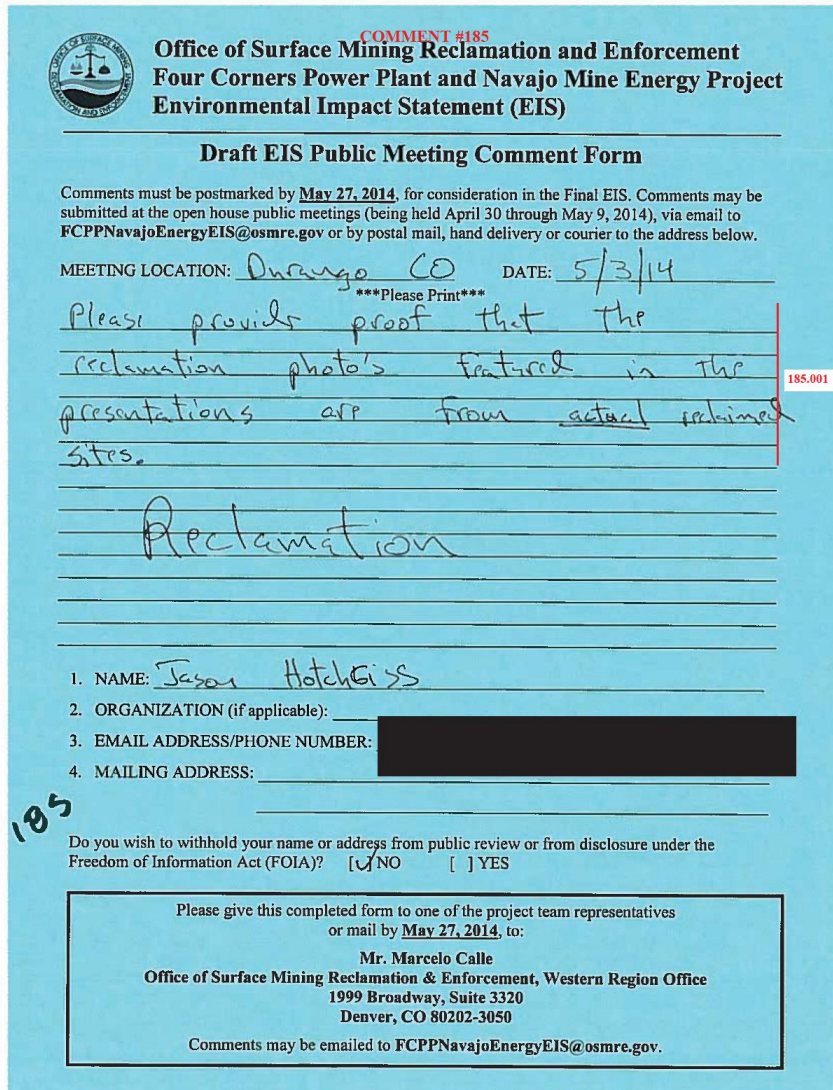 COMMENT #185
OFFICE OF SURFACE MINING
RECLAMATION AND ENFORCEMENT
Office of Surface Mining Reclamation and Enforcement
Four Corners Power Plant and Navajo Mine Energy Project
Environmental Impact Statement (EIS)
Draft EIS Public Meeting Comment Form
Comments must be postmarked by May 27, 2014, for consideration in the Final EIS. Comments may be
submitted at the open house public meetings (being held April 30 through May 9, 2014), via email to
FCPPNavajoEnergyEIS@osmre.gov or by postal mail, hand delivery or courier to the address below.
MEETING LOCATION: Durango CO DATE: 5/3/14
***Please Print***
Please provide proof that the
reclamation photo's featured in the
185.001
presentations are from actual reclaimed
sites.
Reclamation
1. NAME: Jason Hotchkiss
2. ORGANIZATION (if applicable):
3. EMAIL ADDRESS/PHONE NUMBER:
4. MAILING ADDRESS:
185
Do you wish to withhold your name or address from public review or from disclosure under the
Freedom of Information Act (FOIA)? [✓] NO [ ] YES
Please give this completed form to one of the project team representatives
or mail by May 27, 2014, to:
Mr. Marcelo Calle
Office of Surface Mining Reclamation & Enforcement, Western Region Office
1999 Broadway, Suite 3320
Denver, CO 80202-3050
Comments may be emailed to FCPPNavajoEnergyEIS@osmre.gov.